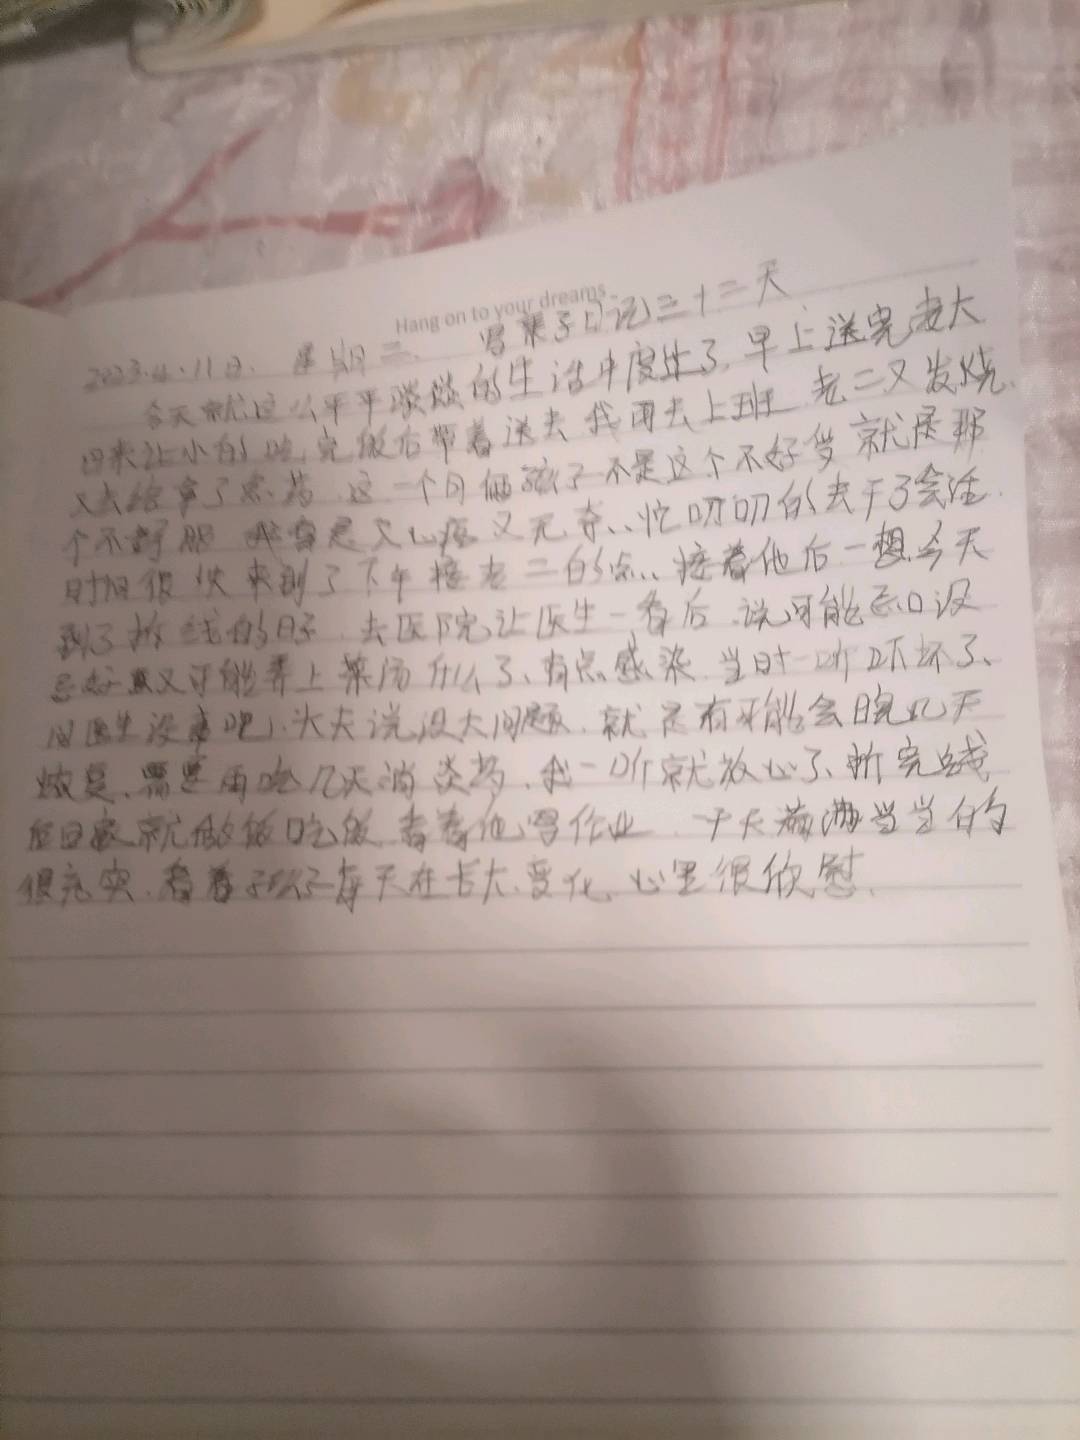 Hang on to your dreams.
2023.4.11日. 星期二. 写亲子日记三十二天
今天就这么平平淡淡的生活中度过了.早上送完老大
回来让小的吃完饭后带着送去我再去上班.老二又发烧.
又去给拿了点药.这一个月俩孩子不是这个不好受就是那
个不舒服 我是又心疼又无奈、忙叨叨的去干了会活.
时间很快来到了下午接老二的点、接着他后一想今天
到了拆线的日子.去医院让医生一看后.说可能忌口没
忌好又可能弄上菜汤什么了、有点感染.当时一听吓坏了、
问医生没事吧、大夫说没大问题.就是有可能会晚几天
恢复.需要再吃几天消炎药.我一听就放心了、拆完线
后回家就做饭吃饭.看着他写作业.一天满满当当的
很充实.看着孩子每天在长大.变化.心里很欣慰.